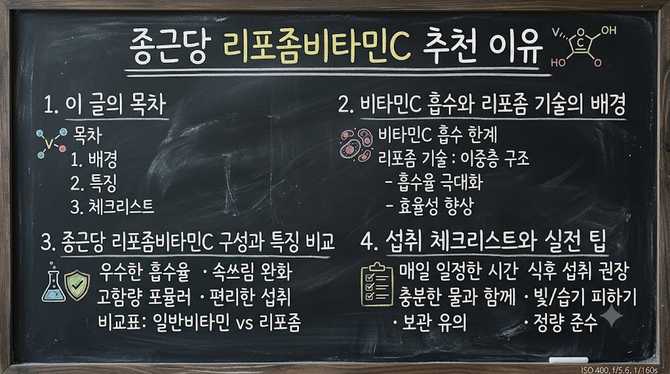 종근당 리포좀비타민C 추천 이유
V
C
OH
HO
O
1. 이 글의 목차
V
목차
1. 배경
2. 특징
3. 체크리스트
2. 비타민C 흡수와 리포좀 기술의 배경
비타민C 흡수 한계
리포좀 기술 : 이중층 구조
- 흡수율 극대화
- 효율성 향상
3. 종근당 리포좀비타민C 구성과 특징 비교
우수한 흡수율 · 속쓰림 완화
고함량 포뮬러 · 편리한 섭취
비교표: 일반비타민 vs 리포좀
4. 섭취 체크리스트와 실전 팁
매일 일정한 시간 식후 섭취 권장
충분한 물과 함께 · 빛/습기 피하기
· 보관 유의 · 정량 준수
ISO 400, f/5.6, 1/160s